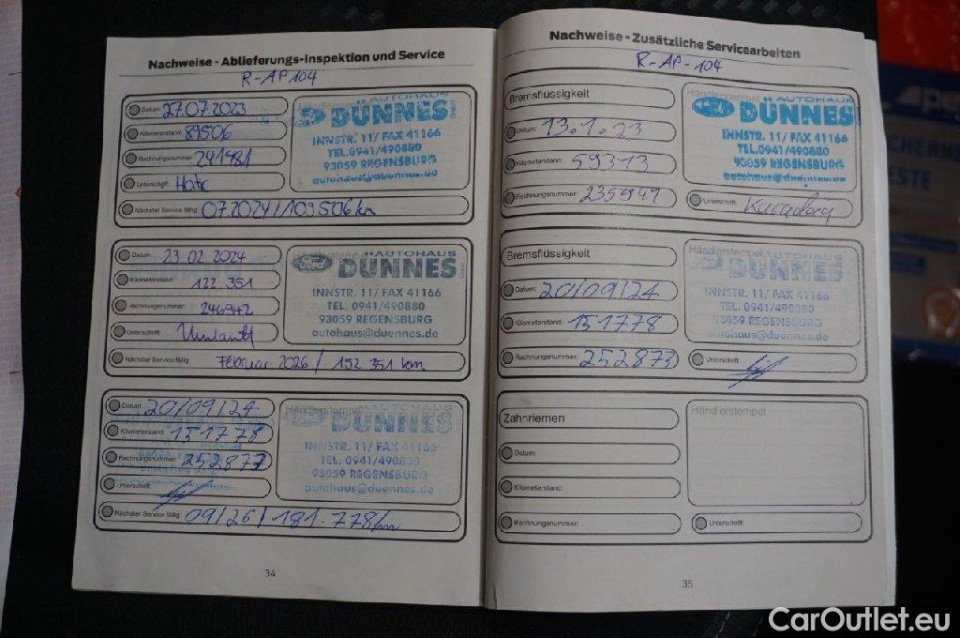 Nachweise - Ablieferungs-Inspektion und Service
R-AP 104
Datum: 27.07.2023
Kilometerstand: 89506
Rechnungsnummer: 241981
Unterschrift:
Nächster Service fällig: 07 2024 / 109506 km
AUTOHAUS
DÜNNES
INNSTR. 11/ FAX 41166
TEL. 0941/490880
93059 REGENSBURG
autohaus@duennes.de
Datum: 23 02 2024
Kilometerstand: 122 351
Rechnungsnummer: 246942
Unterschrift:
Nächster Service fällig: Februar 2026 / 152 351 km
Ford
AUTOHAUS
DÜNNES
INNSTR. 11/ FAX 41166
TEL. 0941/490880
93059 REGENSBURG
autohaus@duennes.de
Datum: 20/09/24
Kilometerstand: 151778
Rechnungsnummer: 252877
Unterschrift:
Nächster Service fällig: 09/26 / 181.778 km
Händlerstempel
DÜNNES
INNSTR. 11/ FAX 41166
TEL. 0941/490880
93059 REGENSBURG
autohaus@duennes.de
34
Nachweise - Zusätzliche Servicearbeiten
R-AP-104
Bremsflüssigkeit
Datum: 13.1.23
Kilometerstand: 59313
Rechnungsnummer: 235941
Händlerstempel
AUTOHAUS
DÜNNES
INNSTR. 11/ FAX 41166
TEL. 0941/490880
93059 REGENSBURG
autohaus@duennes.de
Unterschrift:
Bremsflüssigkeit
Datum: 20/09/24
Kilometerstand: 151778
Rechnungsnummer: 252873
Händlerstempel
AUTOHAUS
DÜNNES
INNSTR. 11/ FAX 41166
TEL. 0941/490880
93059 REGENSBURG
autohaus@duennes.de
Unterschrift:
Zahnriemen
Datum:
Kilometerstand:
Rechnungsnummer:
Händlerstempel
Unterschrift:
35
CarOutlet.eu